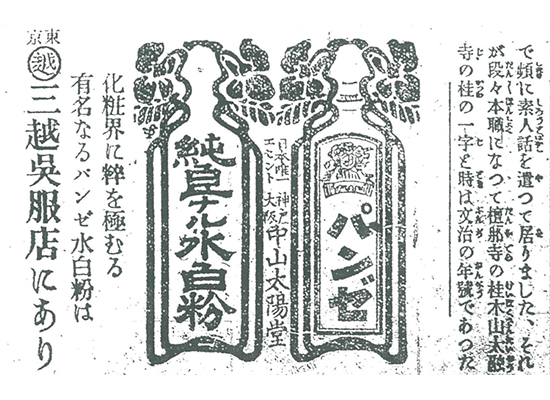 で頻に素人話を遣つて居りました、それ
が段々本職になつて檀那寺の桂木山太融
寺の桂の一字と時は文治の年號であつた
パンゼ
日本唯一
エゼント
神戸
大阪
中山太陽堂
純白ナル水白粉
化粧界に粋を極むる
有名なるバンゼ水白粉は
東京
越
三越呉服店にあり